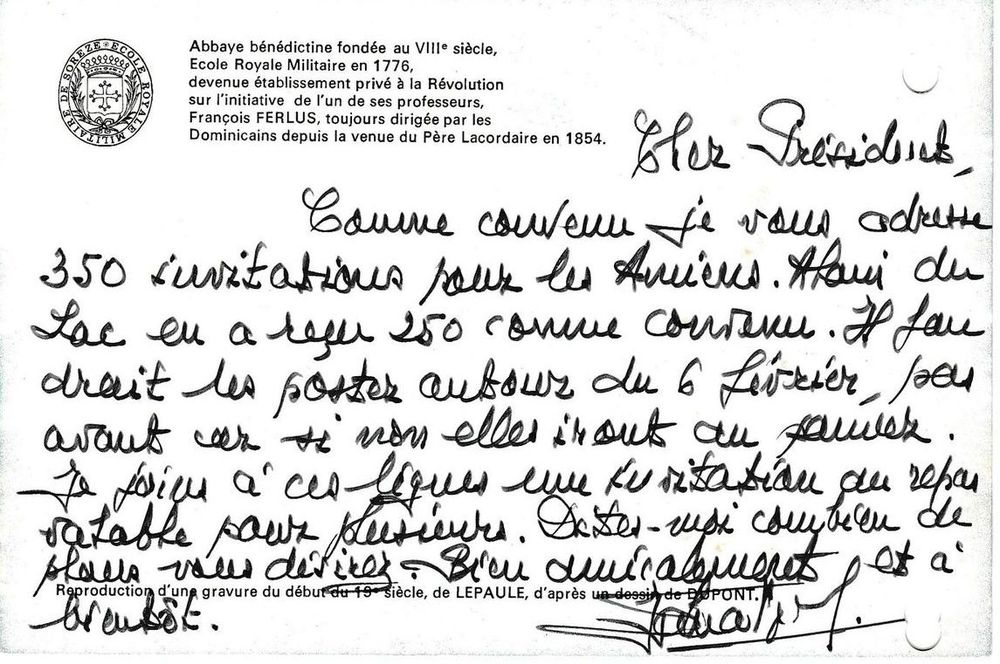 ECOLE ROYALE MILITAIRE DE SOREZE
Abbaye bénédictine fondée au VIIIe siècle,
Ecole Royale Militaire en 1776,
devenue établissement privé à la Révolution
sur l'initiative de l'un de ses professeurs,
François FERLUS, toujours dirigée par les
Dominicains depuis la venue du Père Lacordaire en 1854.
Cher Président,
Comme convenu je vous adresse
350 invitations pour les Anciens. Alain du
Lac en a reçu 250 comme convenu. Il fau
drait les poster autour du 6 février, pas
avant car si non elles iront au panier.
Je joins à ces lignes une invitation au repas
valable pour plusieurs. Dites-moi combien de
places vous désirez. Bien amicalement et à
Reproduction d'une gravure du début du 19e siècle, de LEPAULE, d'après un dessin de DUPONT.
bientôt.